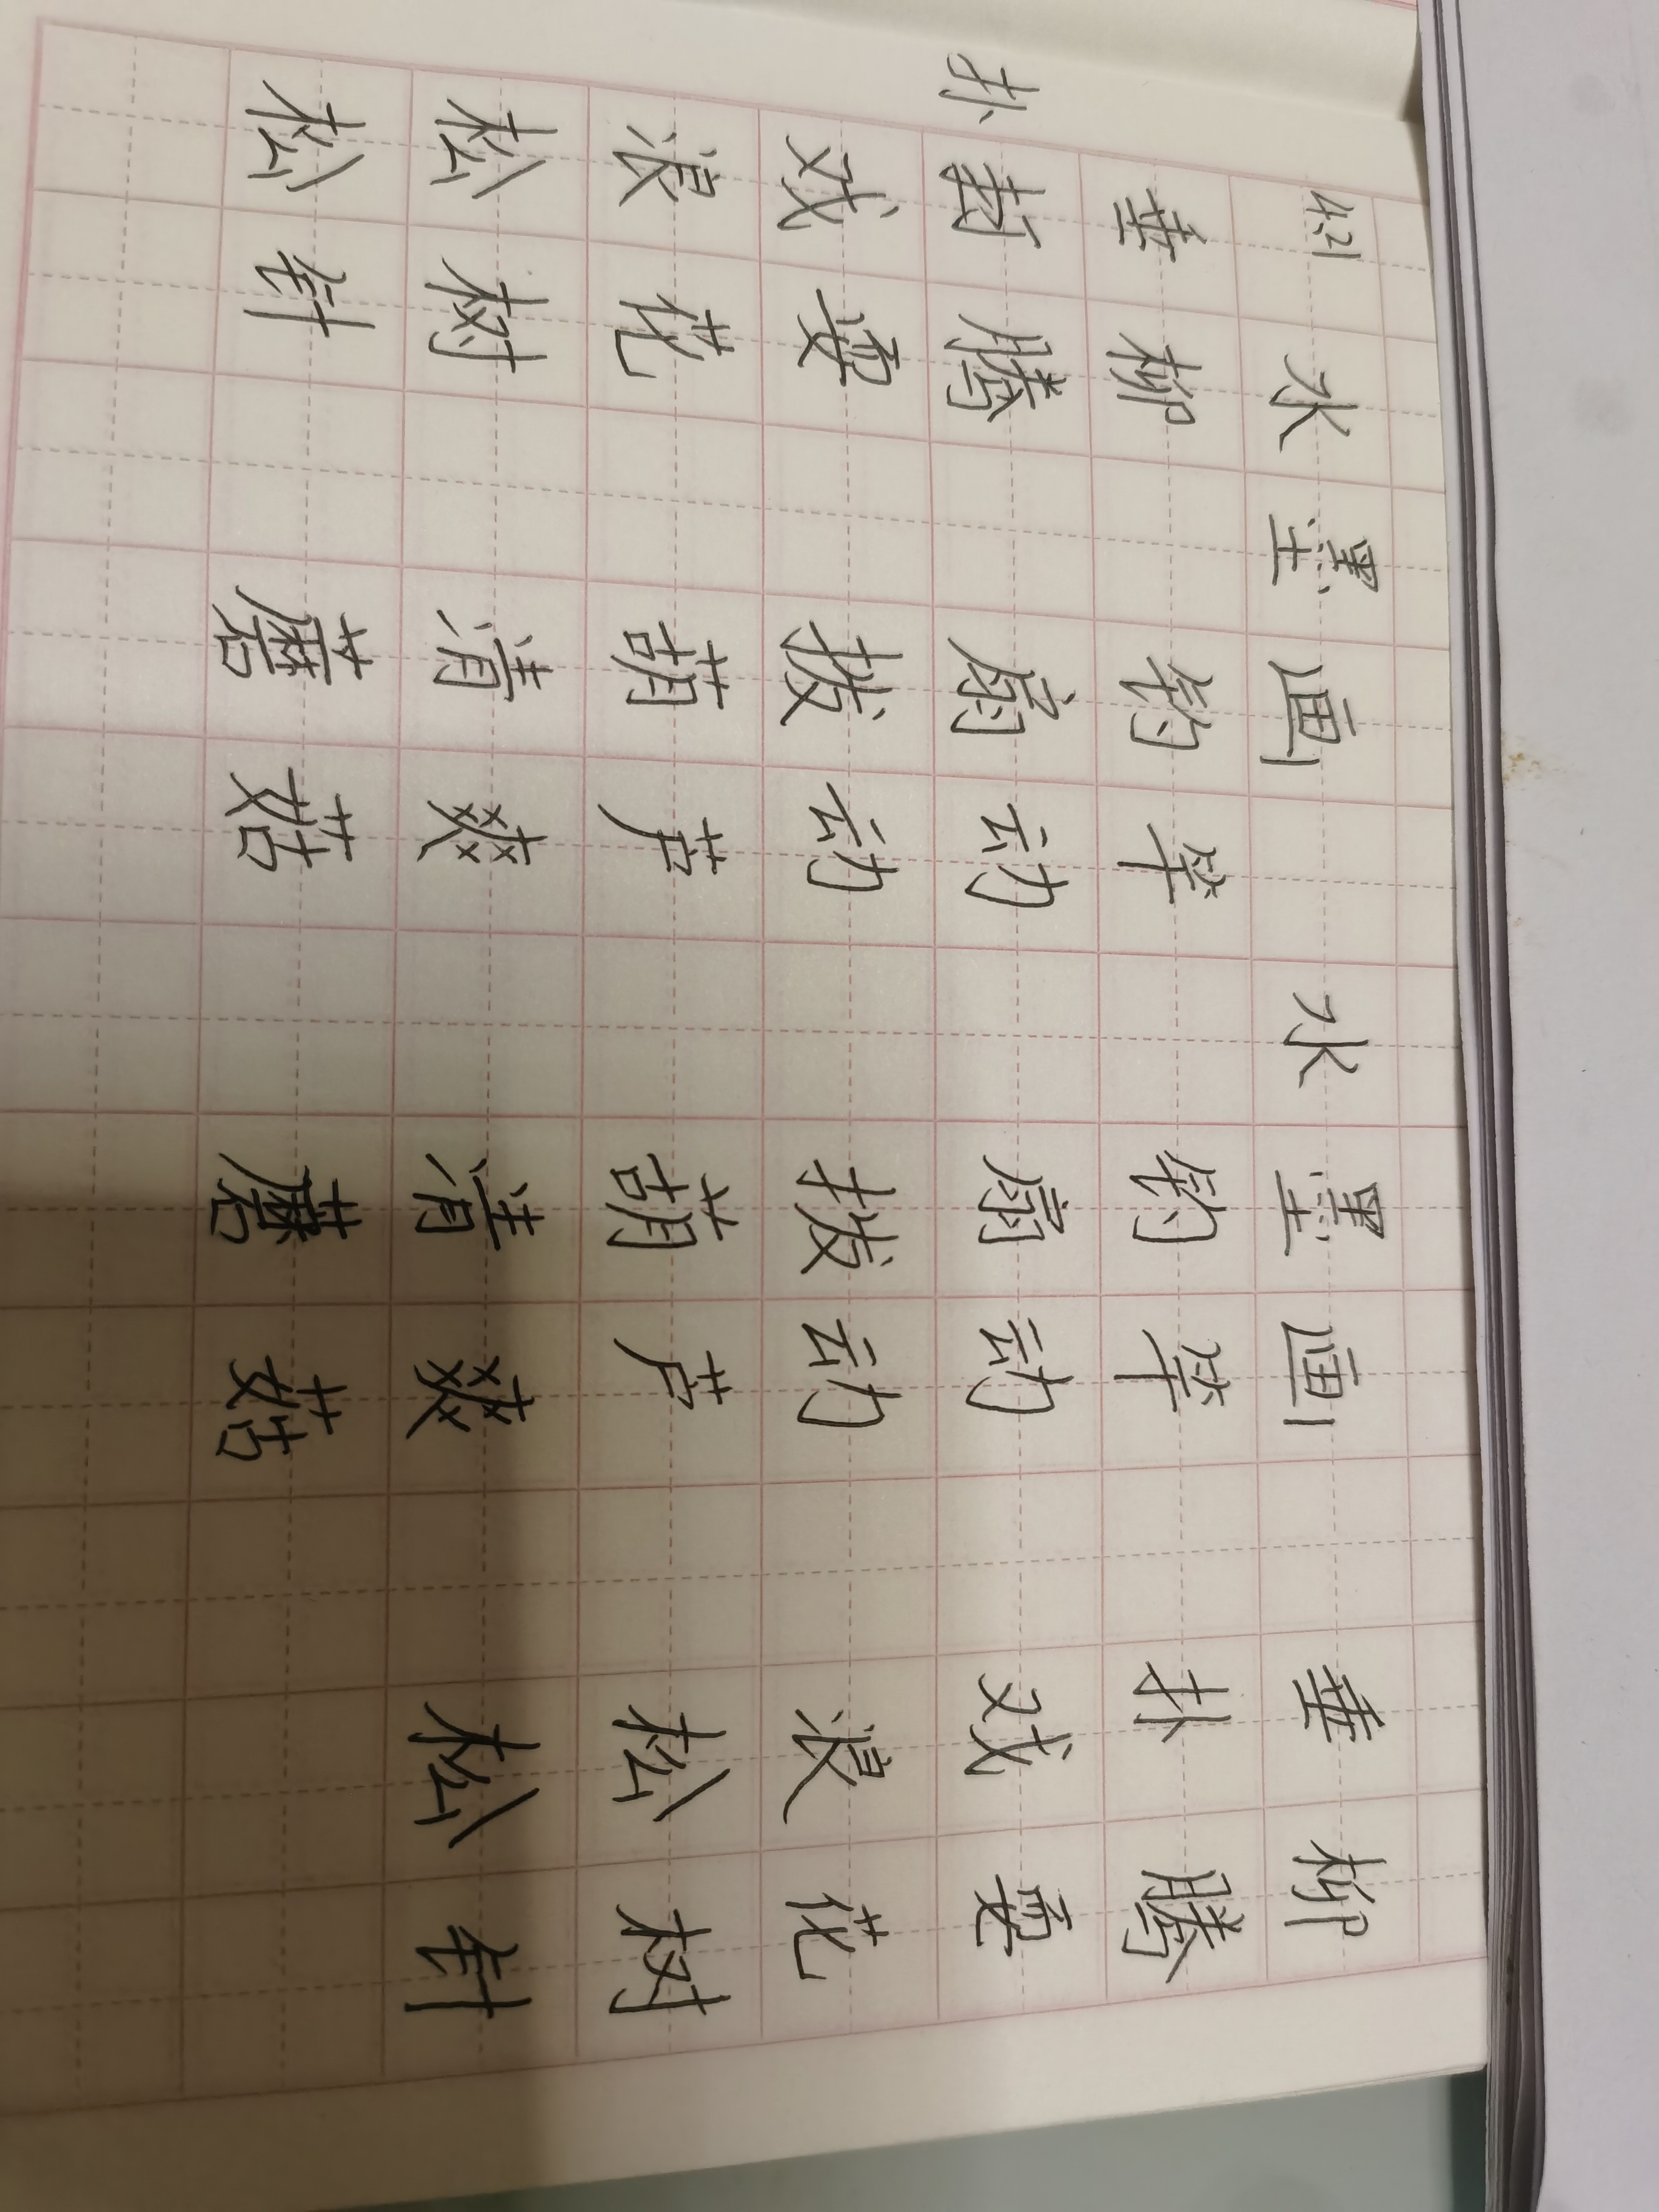 4.21 水墨画 水墨画 垂柳
垂柳 钓竿 钓竿 扑腾
扑腾 扇动 扇动 戏耍
戏耍 拨动 拨动 浪花
浪花 葫芦 葫芦 松树
松树 清爽 清爽 松针
松针 蘑菇 蘑菇